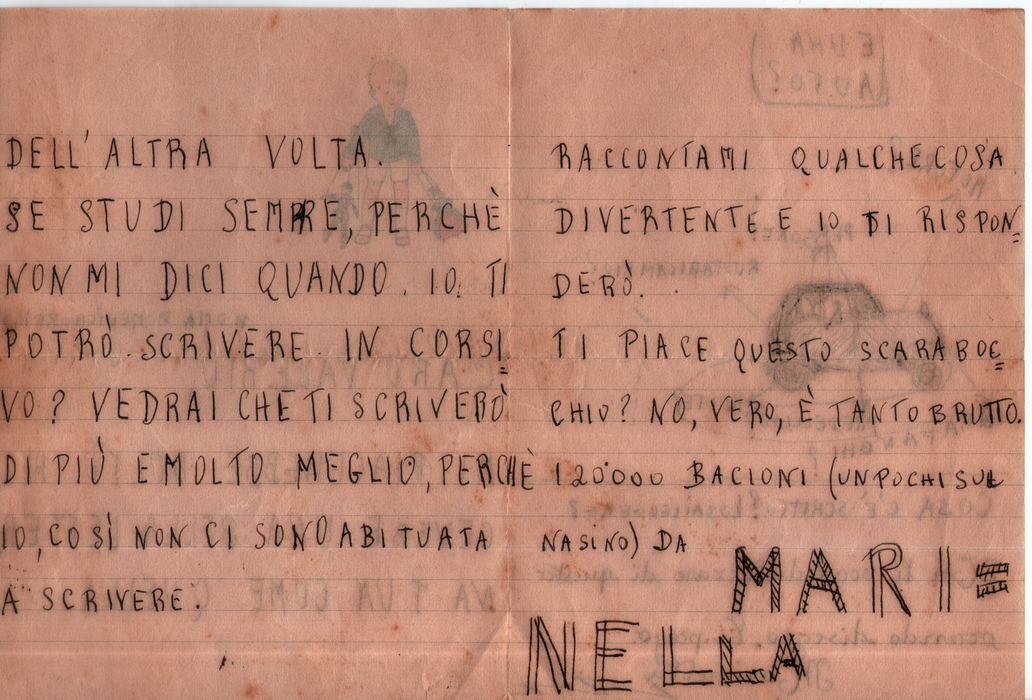 DELL'ALTRA VOLTA.
SE STUDI SEMPRE, PERCHÈ
NON MI DICI QUANDO. IO. TI
POTRÒ. SCRIVERE. IN CORSI=
VO? VEDRAI CHE TI SCRIVERÒ
DI PIÙ E MOLTO MEGLIO, PERCHÈ
IO, COSÌ NON CI SONO ABITUATA
A SCRIVERE.
RACCONTAMI QUALCHECOSA
DIVERTENTE E IO TI RISPON=
DERÒ.
TI PIACE QUESTO SCARABOC=
CHIO? NO, VERO, È TANTO BRUTTO.
120'000 BACIONI (UN POCHI SUL
NASINO) DA
MARI=
NELLA